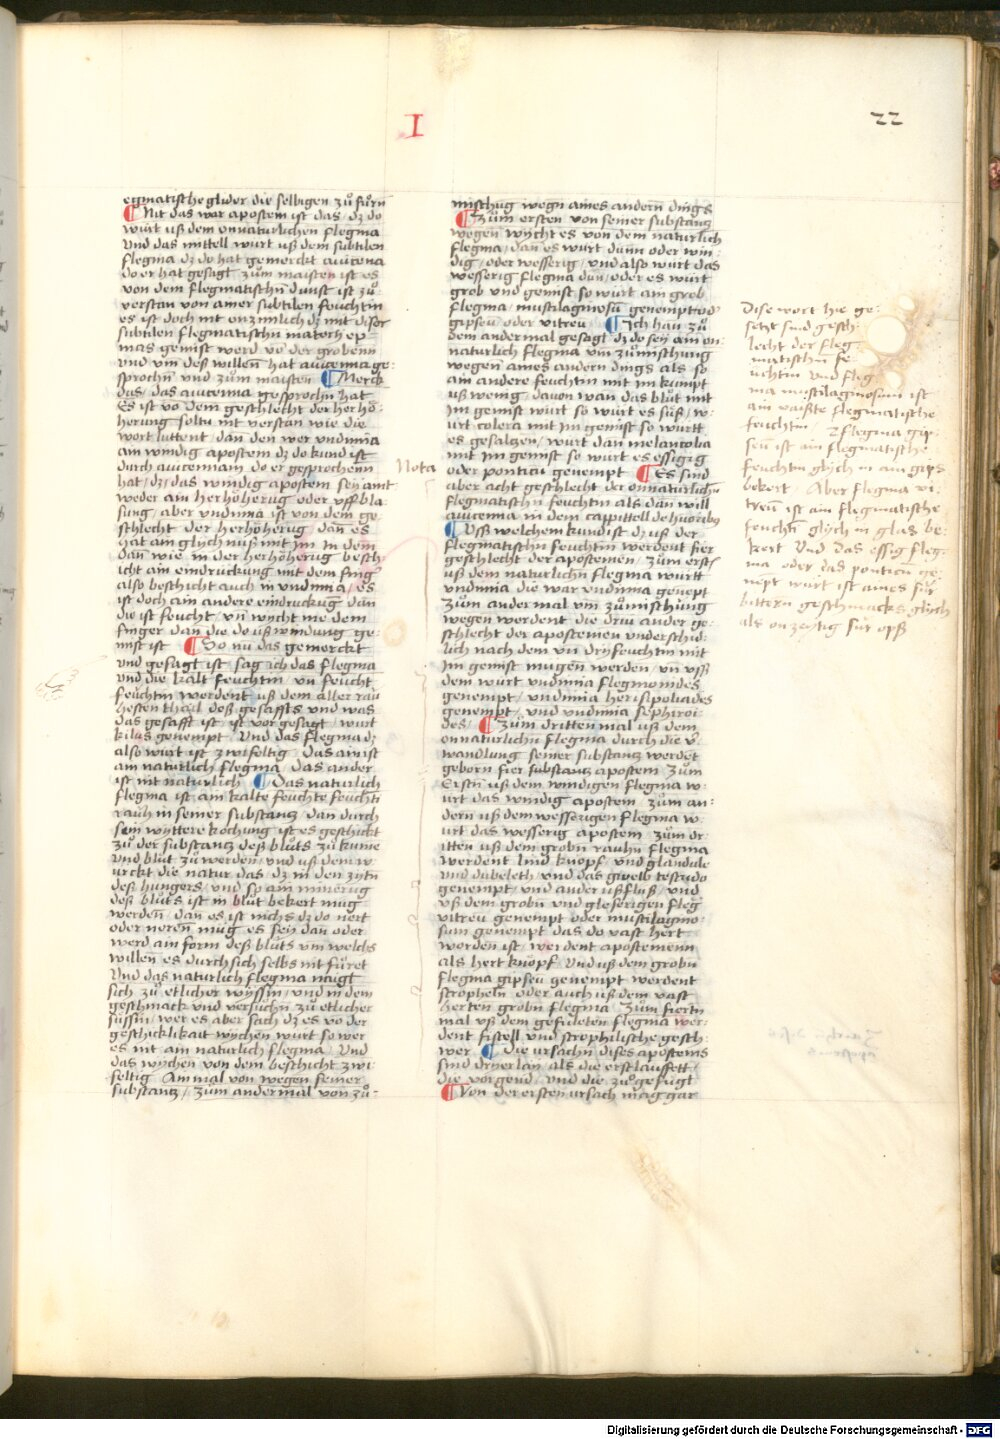 I
22
egmatische glider die selbigen zů fůrn
¶ Nit das war apostem ist das / dz do
würt uß dem onnaturlichen flegma
und das mittell wurt uß dem subtilen
flegma dz do hat gemerckt auicena
do er hat gesagt zům maisten ist es
von dem flegmatischn dunst ist zů
verstan von ainer subtilen feuchtin
es ist doch nit onzimlich dz mit diser
subtilen flegmatischn matery et
was gemist werd vō der grobenn
und um deß willen hat auicenna ge
sprochn und zům maisten ¶ Merck
das / das auicenna gesprochn hat
Es ist vō dem geschlecht der herhö
herung soltu nit verstan wie die
wort luttent / dan den wer undimia
am windig apostem dz do kund ist
durch auicennam do er gesprochenn
hat / dz / das windig apostem sey aint
weder am herhöherug oder uffbla
sung / aber undimia ist von dem ge
schlecht der herhöherug / dan es
hat am glychnuß mit im In dem
dan wie in der herhöherug besch
icht am eindruckung mit dem fing
also beschicht auch in undimia / es
ist doch ain andere eindruckug dan
die ist feucht / un wycht me dem
finger dan die do uß windung ge
mist ist ¶ So nu das gemerckt
und gesagt ist sag ich das flegma
und die kalt feuchtin / un feucht
feuchtin werdent uß dem aller rau
hesten thayl deß gesaffts und was
das gesafft ist / ist vor gesagt / wurt
kilus genempt / Und das flegma dz
also wurt ist zwifeltig / das ain ist
am naturlich flegma / das ander
ist nit naturlich ¶ Das naturlich
flegma ist am kalte feuchte feuchti
rauh in seiner substanz / dan durch
sein wyttere kochung ist es geschickt
zů der substanz deß bluts zů kume
und blut zů werden / und uß dem w
urckt die natur das / dz in den zytn
deß hungers / und so am minerug
deß bluts ist in blut bekert mug
werden / dan es ist nichs dz do nert
oder neren mug es sey dan oder
werd am form deß bluts um welchs
willen es durch sich selbs nit füret
Und das naturlich flegma naigt
sich zů etlicher wyssin / und in dem
geschmack und versůchn zů etlicher
sůssin / wer es aber sach dz es vō der
geschicklikait wychen wurt so wer
es nit am naturlich flegma / Und
das wychen von dem beschicht zwi
feltig Ainmal von wegen seiner
substanz / zům andermal von zů-
mischug wegn aines andern dings
¶ Zům ersten von seiner substanz
wegen wycht es von dem naturlich
flegma / dan es wurt dünn oder win
dig / oder wesserig / und also wurt das
wesserig flegma dün / oder es wurt
grob und gemist so wurt am grob
flegma / mustilaginosū genempt od
gipseū oder vitreū ¶ Ich hau zů
dem andermal gesagt dz do sey am on
naturlich flegma um zůmischung
wegen aines andern dings als so
am andere feuchtin mit im kumpt
uß wenig / davon wan das blut mit
im gemist wurt so wurt es süß / w
urt colera mit im gemist so wurtt
es gesaltzen / wurt dan melancolia
mit im gemist so wurt es essigig
oder ponticū genempt ¶ Es sind
aber acht geschlecht der onnaturlichn
flegmatischn feuchtin als dan will
auicenna in dem cappittell de huōribus
¶ Uß welchem kund ist dz uß der
flegmatischn feuchtin werdent fier
geschlecht der apostemen / zům erstn
uß dem naturlichn flegma wurtt
undimia die war undimia genept
Zům andermal um zůmischung
wegen werdent die driu ander ge
schlecht der apostemen underschid
lich nach dem un dry feuchtin mit
im gemist mugen werden / un uß
dem wurt undimia flegmonides
genempt / undimia herisipoliades
genempt / und undimia sephiroi
des / ¶ Zům dritten mal uß dem
onnaturlichn flegma durch die v̄
wandlung seiner substanz werdēt
geborn fier substanz apostem / Zům
Erstn uß dem windigen flegma w
urt das windig apostem / zům an
dern uß dem wesserigen flegma w
urt das wesserig apostem / zům dr
itten uß dem grobn rauhn flegma
werdent lind knopf / und glandule
und dubeleth / und das gwelb testudo
genempt / und ander ußfluß / und
uß dem grobn und gleserigen fleg
vitreū genempt oder mustilagino
sum genempt das do vast hert
worden ist / werdent apostemenn
als hert knopf / Und uß dem grobn
flegma gipseū genempt werdent
stropheln oder auch uß dem vast
herten grobn flegma / Zům fiertn
mal uß dem gefuleten flegma wer
dent fistell und strophilische gesch
wer ¶ Die ursachn dises apostems
sind dryerlay als die erst lauffett /
die vorgend / und die zůgefugt
¶ Von der ersten ursach mag gar
Nota
Dise wort hie ge
setzt sind gesch
lecht der fleg
matischn fe
uchtin Und fleg
ma mustilaginosum ist
am waißte flegmatische
feuchtin / Flegma gip
seū ist am flegmatische
feuchtin glych in aim gips
bekert / Aber flegma vi
treū ist am flegmatische
feuchtn glych in glas be
kert Und das essig fleg
ma oder das ponticū ge
nept wurt ist aines sůr
bittern geschmacks glych
als onzeytig sur opß
Digitalisierung gefördert durch die Deutsche Forschungsgemeinschaft - DFG